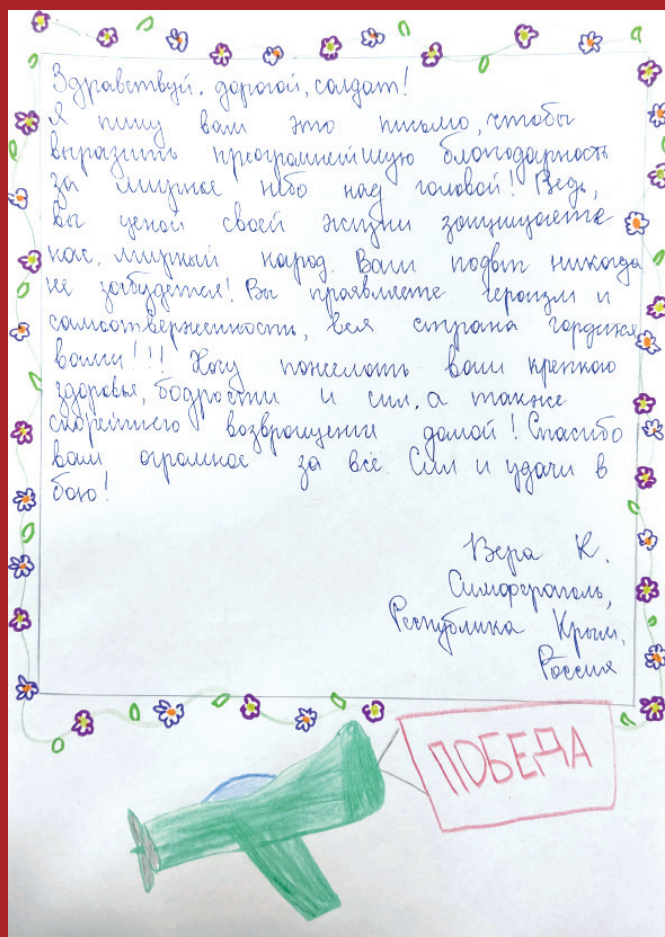 Здравствуй, дорогой, солдат!
Я пишу вам это письмо, чтобы
выразить преогромнейшую благодарность
за мирное небо над головой! Ведь,
вы ценой своей жизни защищаете
нас, мирный народ. Ваш подвиг никогда
не забудется! Вы проявляете героизм и
самоотверженность, вся страна гордится
вами!!! Хочу пожелать вам крепкого
здоровья, бодрости и сил, а также
скорейшего возвращения домой! Спасибо
вам огромное за всё. Сил и удачи в
бою!
Вера К.
Симферополь,
Республика Крым,
Россия
ПОБЕДА